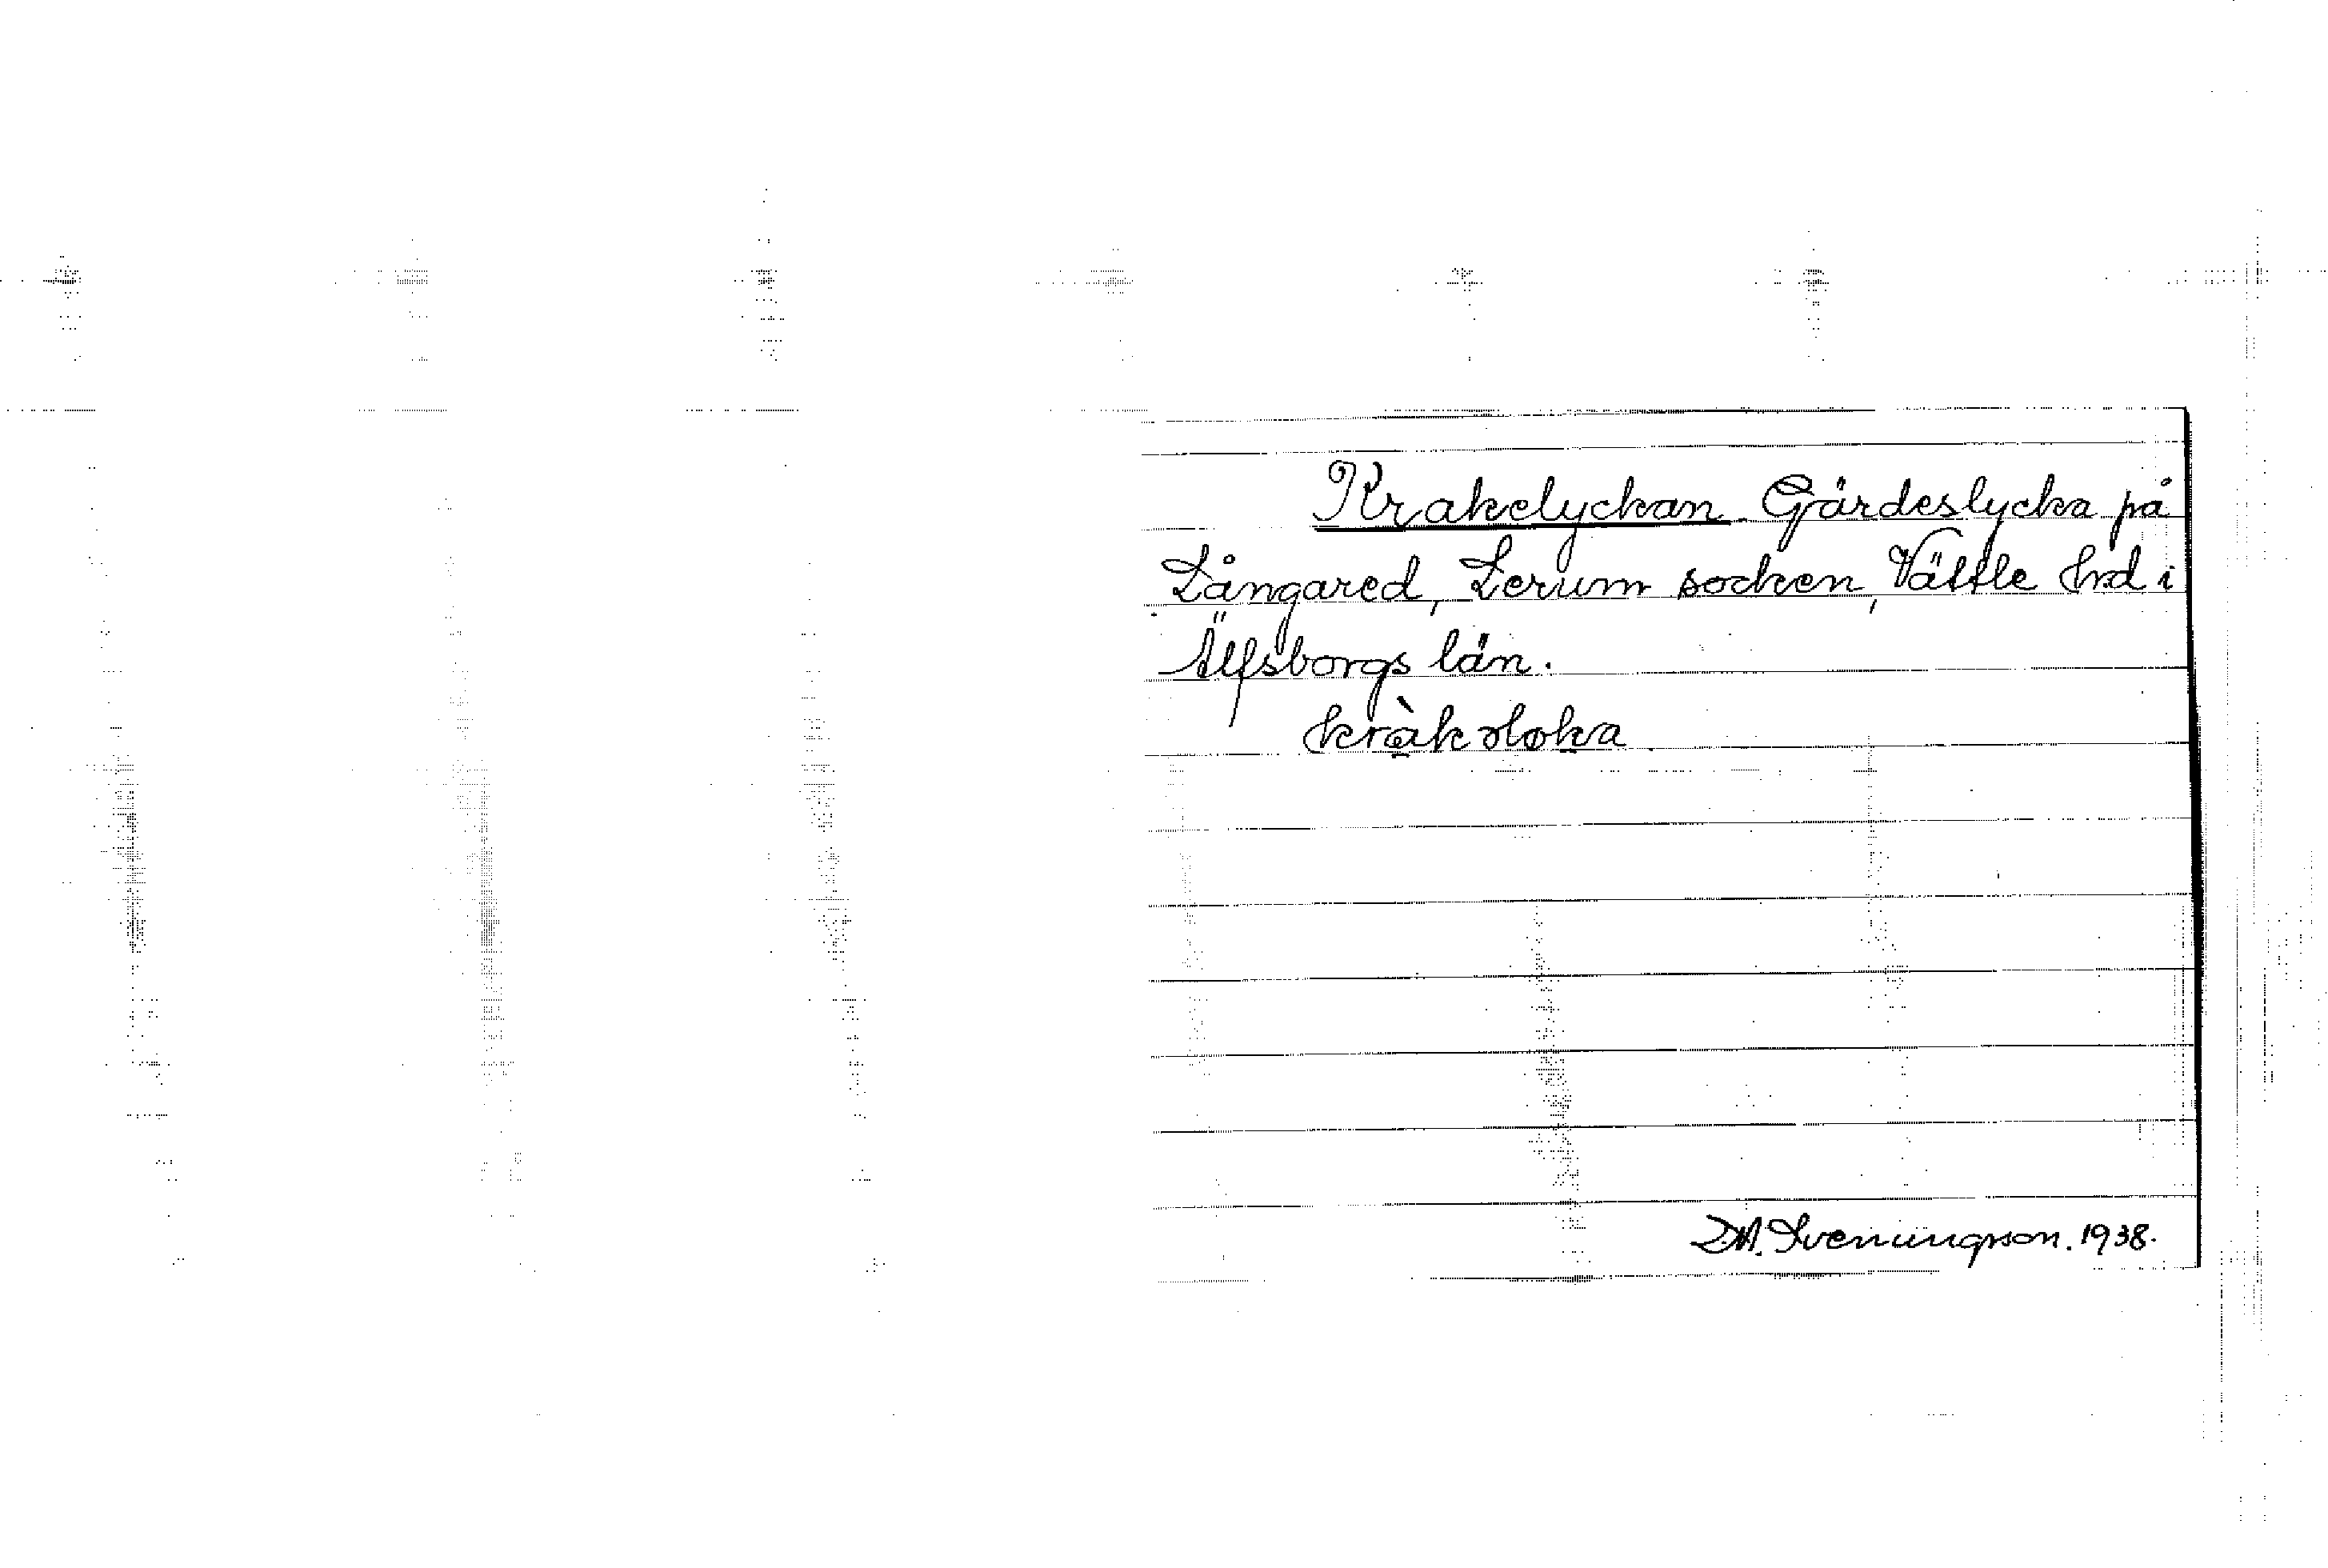 Krakelyckan Gärdeslycka på
Långared, Lerum socken, Vättle hrd i
Älfsborgs län.
D.A. Sveningson. 1938.